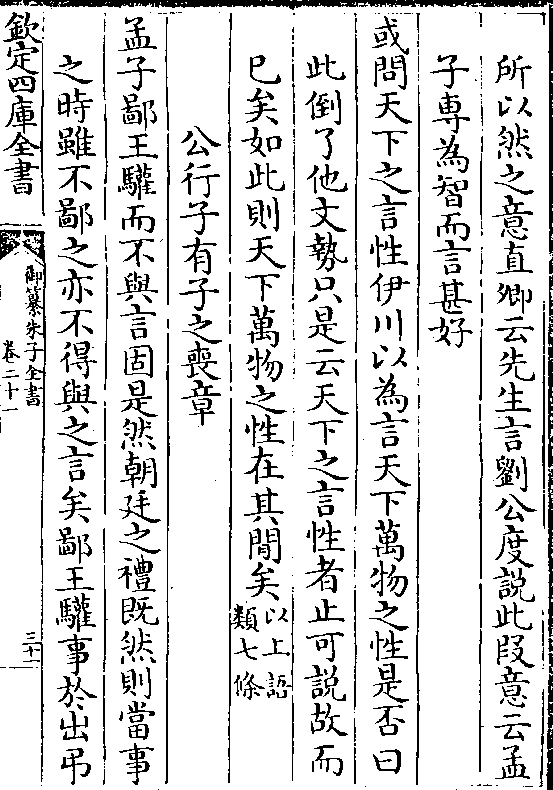 所以然之意直卿云先生言劉公度說此段意云孟
子專為智而言甚好
或問天下之言性伊川以為言天下萬物之性是否曰
此倒了他文勢只是云天下之言性者止可說故而
已矣如此則天下萬物之性在其間矣以上語類七條
公行子有子之喪章
孟子鄙王驩而不與言固是然朝廷之禮既然則當事
之時雖不鄙之亦不得與之言矣鄙王驩事於出弔
欽定四庫全書
御纂朱子全書
卷二十一
三十一